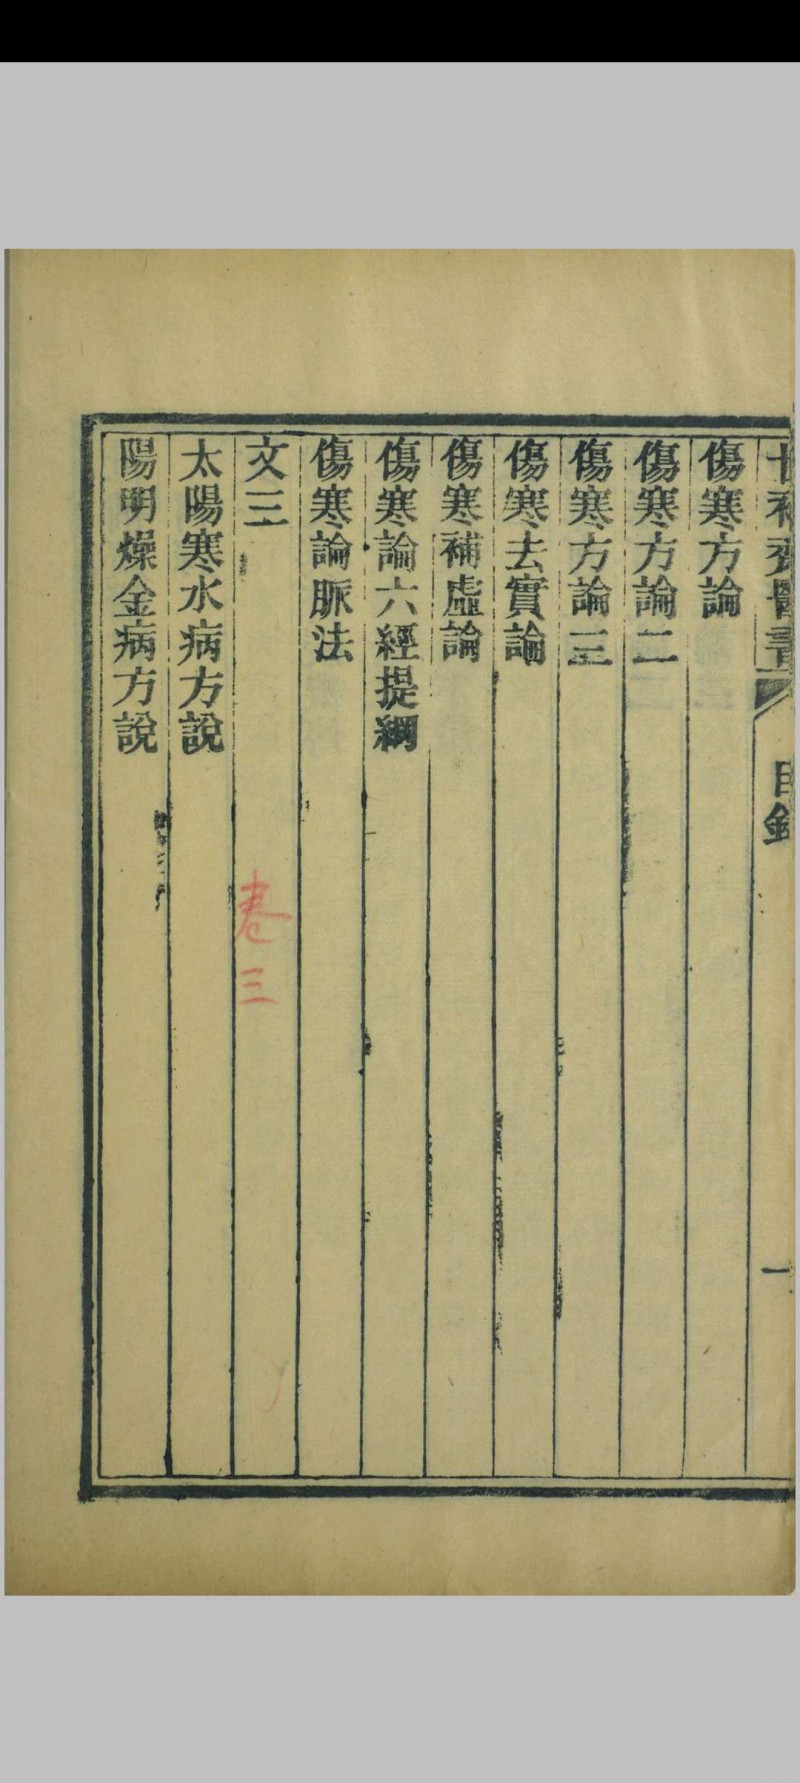 世補齋醫書
目錄
一
傷寒方論
傷寒方論二
傷寒方論三
傷寒去實論
傷寒補虛論
傷寒論六經提綱
傷寒論脈法
文三
卷三
太陽寒水病方說
陽明燥金病方說